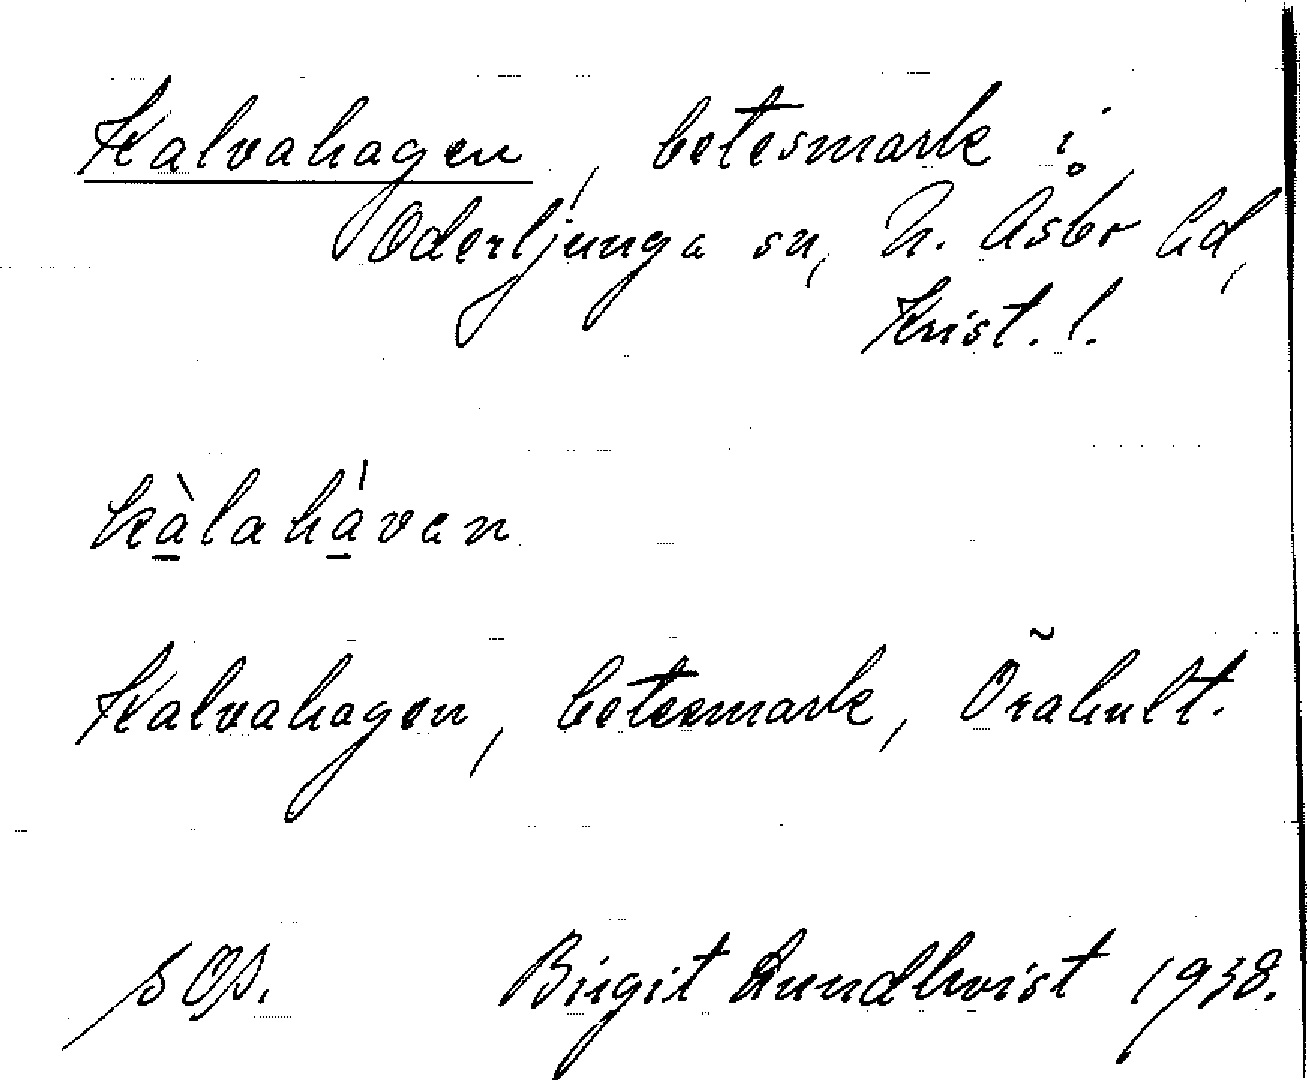 Kalvahagen, betesmark i
Oderljunga sn, N. Åsbo hd,
Krist. l.
kàlahávan
Kalvahagen, betesmark, Örahult.
Birgit Lundkvist 1938.